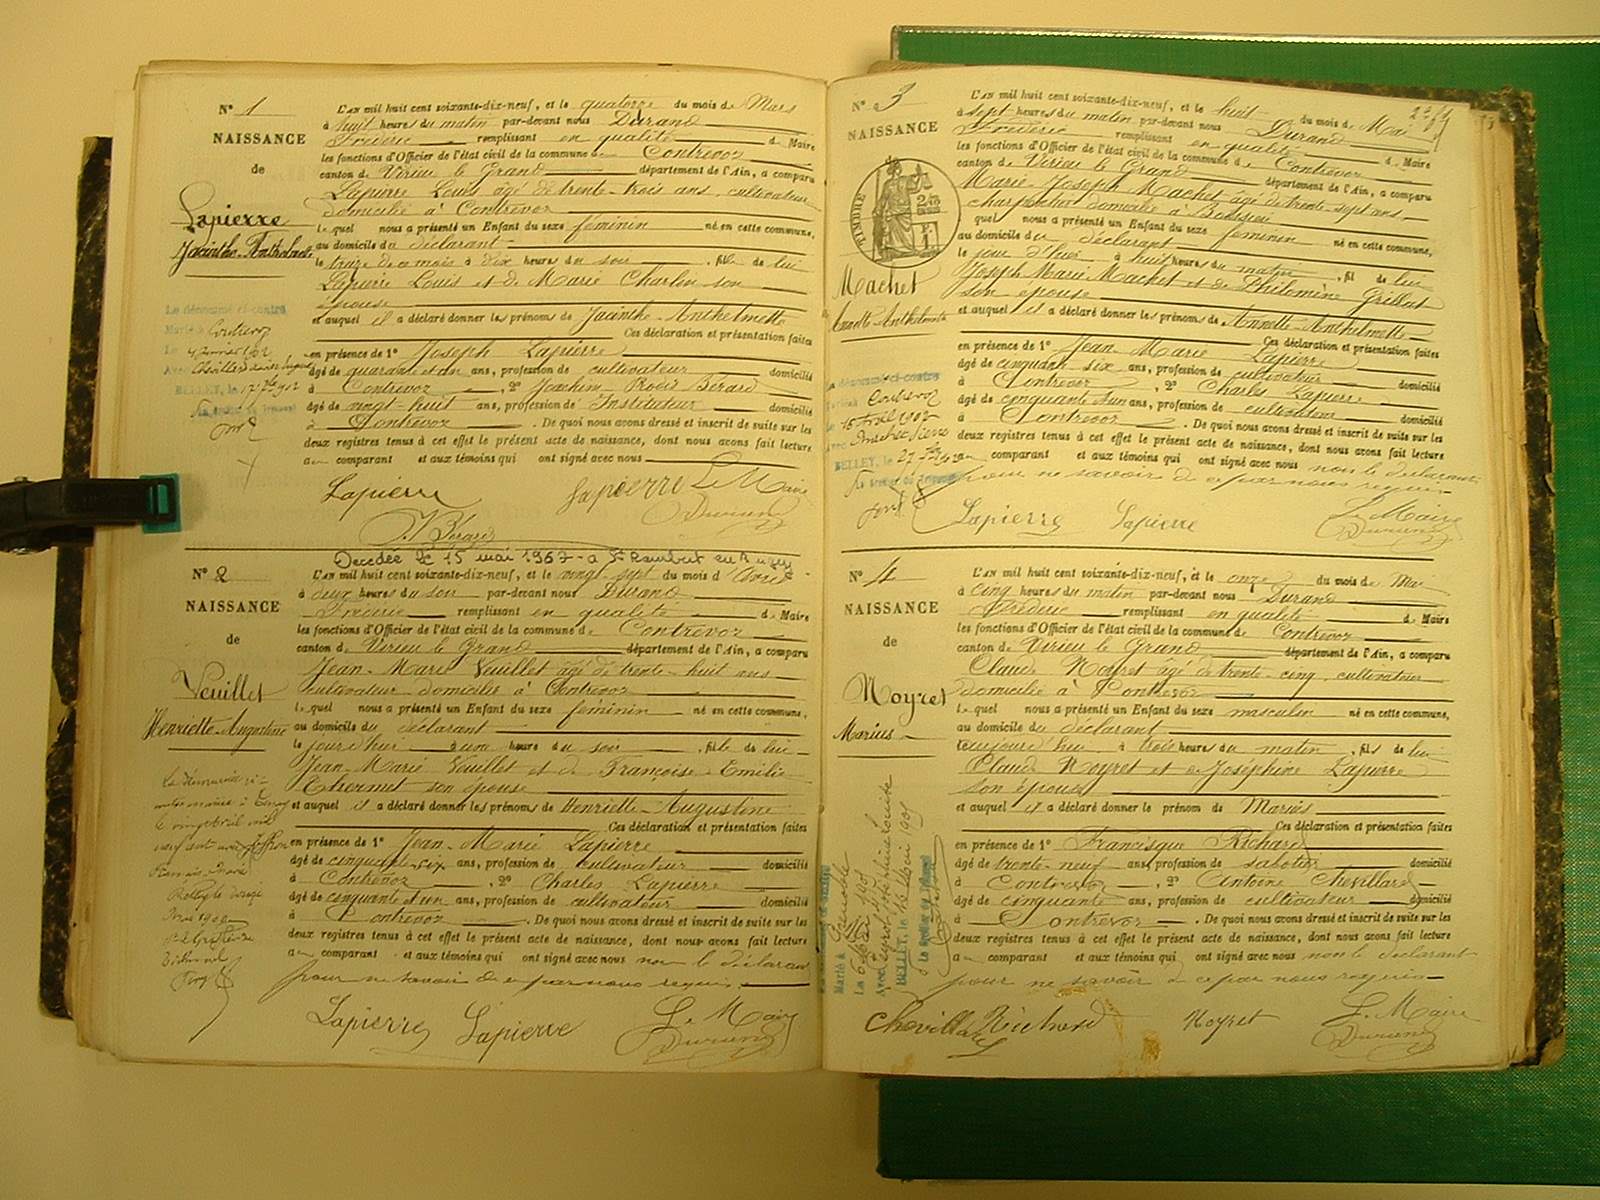 N° 1
NAISSANCE
de
Lapierre
Jacinthe-Anthelmette
L'AN mil huit cent soixante-dix-neuf, et le quatorze du mois de Mars
à huit heures du matin par-devant nous Durand
Frédéric remplissant en qualité de Maire
les fonctions d'Officier de l'état civil de la commune de Contrevoz
canton de Virieu le Grand département de l'Ain, a comparu
Lapierre Louis âgé de trente-trois ans, cultivateur
domicilié à Contrevoz
lequel nous a présenté un Enfant du sexe féminin né en cette commune,
au domicile du déclarant
le treize de ce mois à dix heures du soir, fille de lui
Lapierre Louis et de Marie Charlin son
épouse
et auquel il a déclaré donner les prénoms de Jacinthe-Anthelmette
Ces déclaration et présentation faites
en présence de 1° Joseph Lapierre
âgé de quarante et un ans, profession de cultivateur domicilié
à Contrevoz, 2° Joachim Bérard
âgé de vingt-huit ans, profession de Instituteur domicilié
à Contrevoz. De quoi nous avons dressé et inscrit de suite sur les
deux registres tenus à cet effet le présent acte de naissance, dont nous avons fait lecture
au comparant et aux témoins qui ont signé avec nous
Lapierre Lapierre Le Maire
J. Bérard Durand
La dénommée ci-contre
Mariée à
Le
Avec
BELLEY, le
Décédée le 15 mai 1967 à St Rambert en Bugey
N° 2
NAISSANCE
de
Veuillet
Henriette-Augustine
L'AN mil huit cent soixante-dix-neuf, et le vingt-sept du mois d'Avril
à deux heures du soir par-devant nous Durand
Frédéric remplissant en qualité de Maire
les fonctions d'Officier de l'état civil de la commune de Contrevoz
canton de Virieu le Grand département de l'Ain, a comparu
Jean-Marie Veuillet âgé de trente-huit ans
cultivateur domicilié à Contrevoz
lequel nous a présenté un Enfant du sexe féminin né en cette commune,
au domicile du déclarant
le jour d'hui à une heure du soir, fille de lui
Jean-Marie Veuillet et de Françoise Emilie
Thermet son épouse
et auquel il a déclaré donner les prénoms de Henriette-Augustine
Ces déclaration et présentation faites
en présence de 1° Jean-Marie Lapierre
âgé de cinquante-six ans, profession de cultivateur domicilié
à Contrevoz, 2° Charles Lapierre
âgé de cinquante et un ans, profession de cultivateur domicilié
à Contrevoz. De quoi nous avons dressé et inscrit de suite sur les
deux registres tenus à cet effet le présent acte de naissance, dont nous avons fait lecture
au comparant et aux témoins qui ont signé avec nous non le déclarant
pour ne savoir de ce par nous requis.
Lapierre Lapierre Le Maire
Durand
N° 3
NAISSANCE
de
TIMBRE
Machet
Annette-Anthelmette
L'AN mil huit cent soixante-dix-neuf, et le huit du mois de Mai
à sept heures du matin par-devant nous Durand
Frédéric remplissant en qualité de Maire
les fonctions d'Officier de l'état civil de la commune de Contrevoz
canton de Virieu le Grand département de l'Ain, a comparu
Marie-Joseph Machet âgé de trente-sept ans
charpentier domicilié à
lequel nous a présenté un Enfant du sexe féminin né en cette commune,
au domicile du déclarant
le jour d'hui à huit heures du matin, fil de lui
Joseph Marie Machet et de Philomène Grillet
son épouse
et auquel il a déclaré donner les prénoms de Annette-Anthelmette
Ces déclaration et présentation faites
en présence de 1° Jean-Marie Lapierre
âgé de cinquante-six ans, profession de cultivateur domicilié
à Contrevoz, 2° Charles Lapierre
âgé de cinquante et un ans, profession de cultivateur domicilié
à Contrevoz. De quoi nous avons dressé et inscrit de suite sur les
deux registres tenus à cet effet le présent acte de naissance, dont nous avons fait lecture
au comparant et aux témoins qui ont signé avec nous non le déclarant
pour ne savoir de ce par nous requis
Lapierre Lapierre Le Maire
Durand
La dénommée ci-contre
15 Avril 1902
BELLEY, le
N° 4
NAISSANCE
de
Noyret
Marius
L'AN mil huit cent soixante-dix-neuf, et le onze du mois de Mai
à cinq heures du matin par-devant nous Durand
Frédéric remplissant en qualité de Maire
les fonctions d'Officier de l'état civil de la commune de Contrevoz
canton de Virieu le Grand département de l'Ain, a comparu
Claude Noyret âgé de trente-cinq, cultivateur
domicilié à Contrevoz
lequel nous a présenté un Enfant du sexe masculin né en cette commune,
au domicile du déclarant
aujourd'hui à trois heures du matin, fils de lui
Claude Noyret et de Joséphine Lapierre
son épouse
et auquel il a déclaré donner le prénom de Marius
Ces déclaration et présentation faites
en présence de 1° Francisque Richard
âgé de trente-neuf ans, profession de sabotier domicilié
à Contrevoz, 2° Antoine Chevillard
âgé de cinquante ans, profession de cultivateur domicilié
à Contrevoz. De quoi nous avons dressé et inscrit de suite sur les
deux registres tenus à cet effet le présent acte de naissance, dont nous avons fait lecture
au comparant et aux témoins qui ont signé avec nous non le déclarant
pour ne savoir de ce par nous requis
Chevillard Richard Noyret Le Maire
Durand
Marié à Grenoble
BELLEY, le